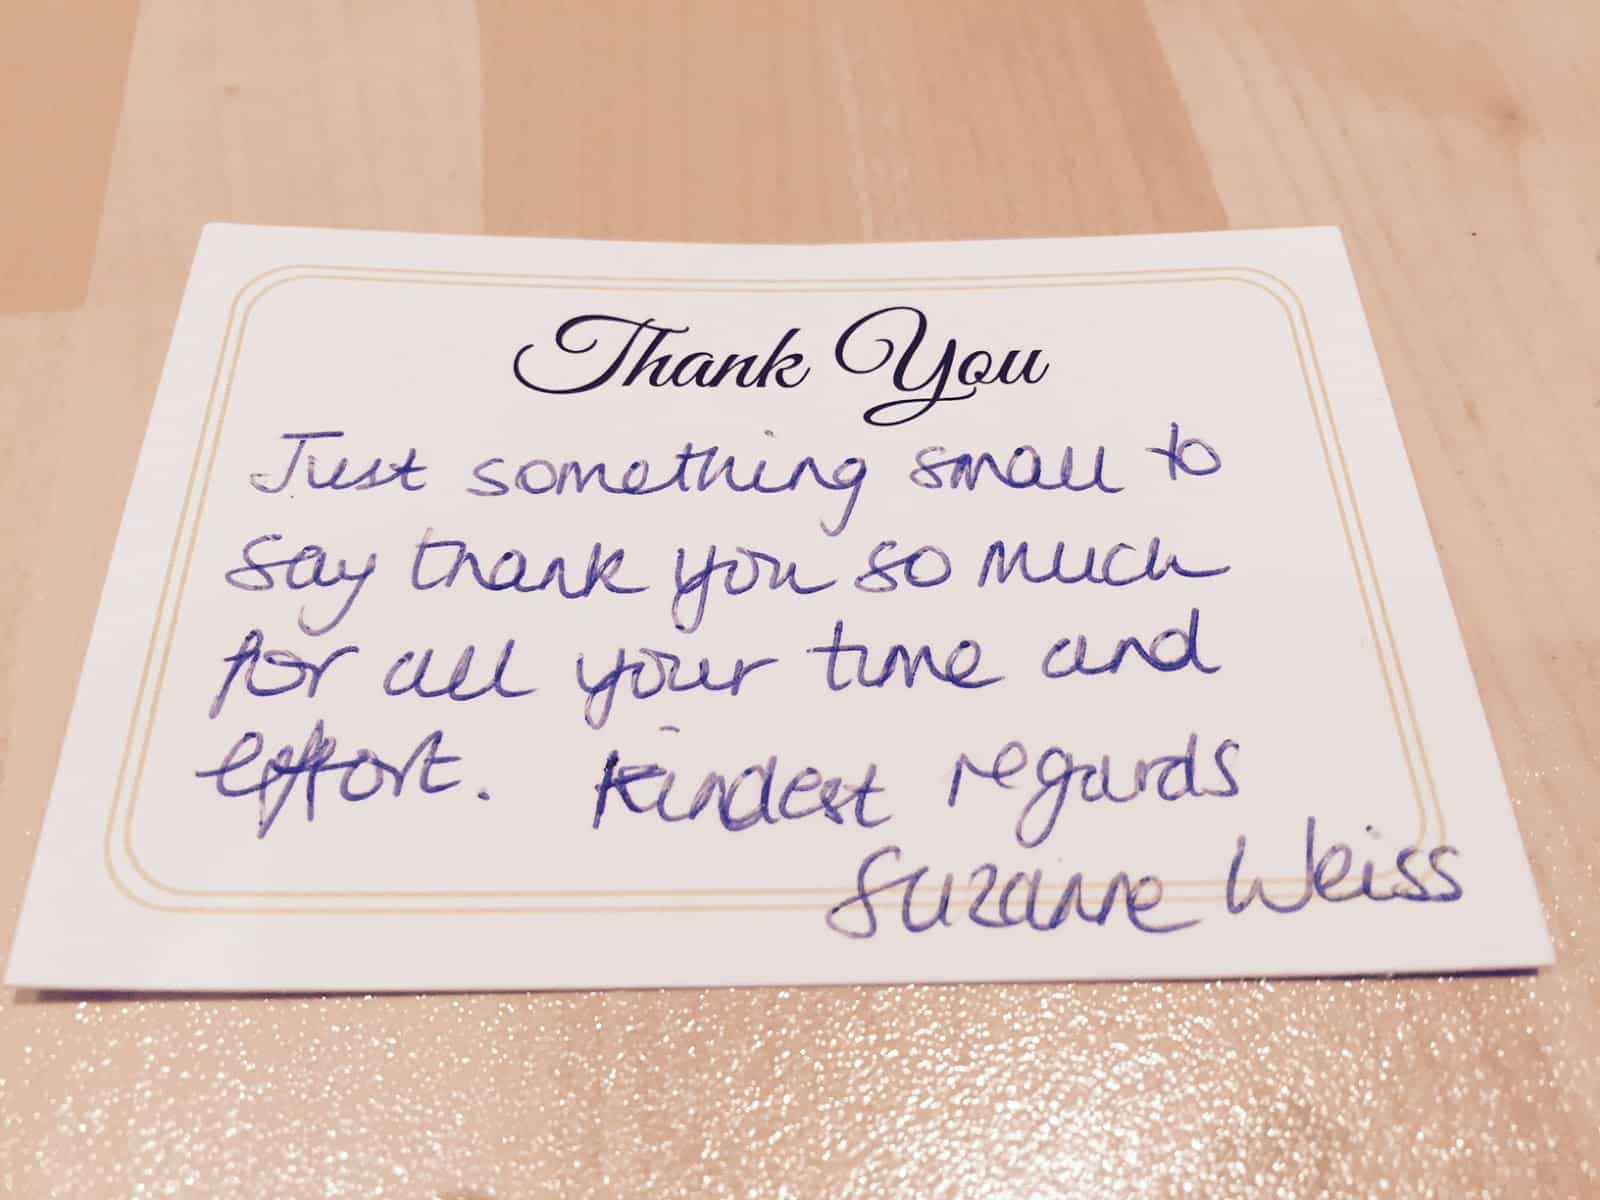 Thank You
Just something small to
say thank you so much
for all your time and
effort. Kindest regards
Suzanne Weiss